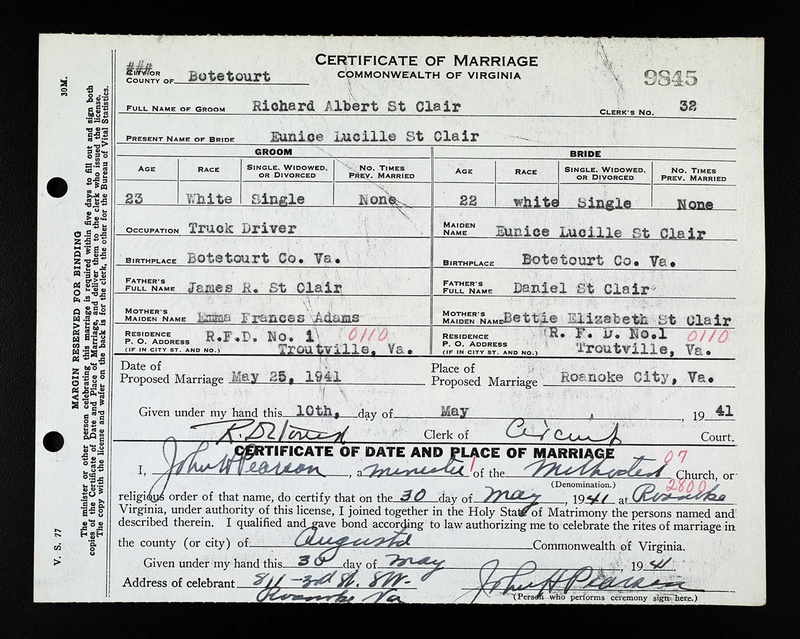 CERTIFICATE OF MARRIAGE
COMMONWEALTH OF VIRGINIA
9845
CITY OR
COUNTY OF Botetourt
FULL NAME OF GROOM Richard Albert St Clair CLERK'S No. 32
PRESENT NAME OF BRIDE Eunice Lucille St Clair
GROOM BRIDE
AGE RACE SINGLE, WIDOWED, OR DIVORCED NO. TIMES PREV. MARRIED AGE RACE SINGLE, WIDOWED, OR DIVORCED NO. TIMES PREV. MARRIED
23 White Single None 22 white Single None
OCCUPATION Truck Driver MAIDEN NAME Eunice Lucille St Clair
BIRTHPLACE Botetourt Co. Va. BIRTHPLACE Botetourt Co. Va.
FATHER'S FULL NAME James R. St Clair FATHER'S FULL NAME Daniel St Clair
MOTHER'S MAIDEN NAME Emma Frances Adams MOTHER'S MAIDEN NAME Bettie Elizabeth St Clair
RESIDENCE P. O. ADDRESS (IF IN CITY ST. AND NO.) R.F.D. No. 1 0110 Troutville, Va. RESIDENCE P. O. ADDRESS (IF IN CITY ST. AND NO.) R. F. D. No.1 0110 Troutville, Va.
Date of Proposed Marriage May 25, 1941 Place of Proposed Marriage Roanoke City, Va.
Given under my hand this 10th, day of May , 1941
Clerk of Circuit Court.
CERTIFICATE OF DATE AND PLACE OF MARRIAGE
I, John H Pearson , a minister of the Methodist 07 Church, or
(Denomination.) 2800
religious order of that name, do certify that on the 30 day of May , 1941 at Roanoke
Virginia, under authority of this license, I joined together in the Holy State of Matrimony the persons named and
described therein. I qualified and gave bond according to law authorizing me to celebrate the rites of marriage in
the county (or city) of Augusta Commonwealth of Virginia.
Given under my hand this 30 day of May , 1941.
Address of celebrant 311 - 3rd St. SW. John H Pearson
Roanoke Va (Person who performs ceremony sign here.)
V. S. 77 30M.
MARGIN RESERVED FOR BINDING
The minister or other person celebrating this marriage is required within five days to fill out and sign both
copies of the Certificate of Date and Place of Marriage, and deliver them to the clerk who issued the license.
The copy with the license and wafer on the back is for the clerk, the other for the Bureau of Vital Statistics.